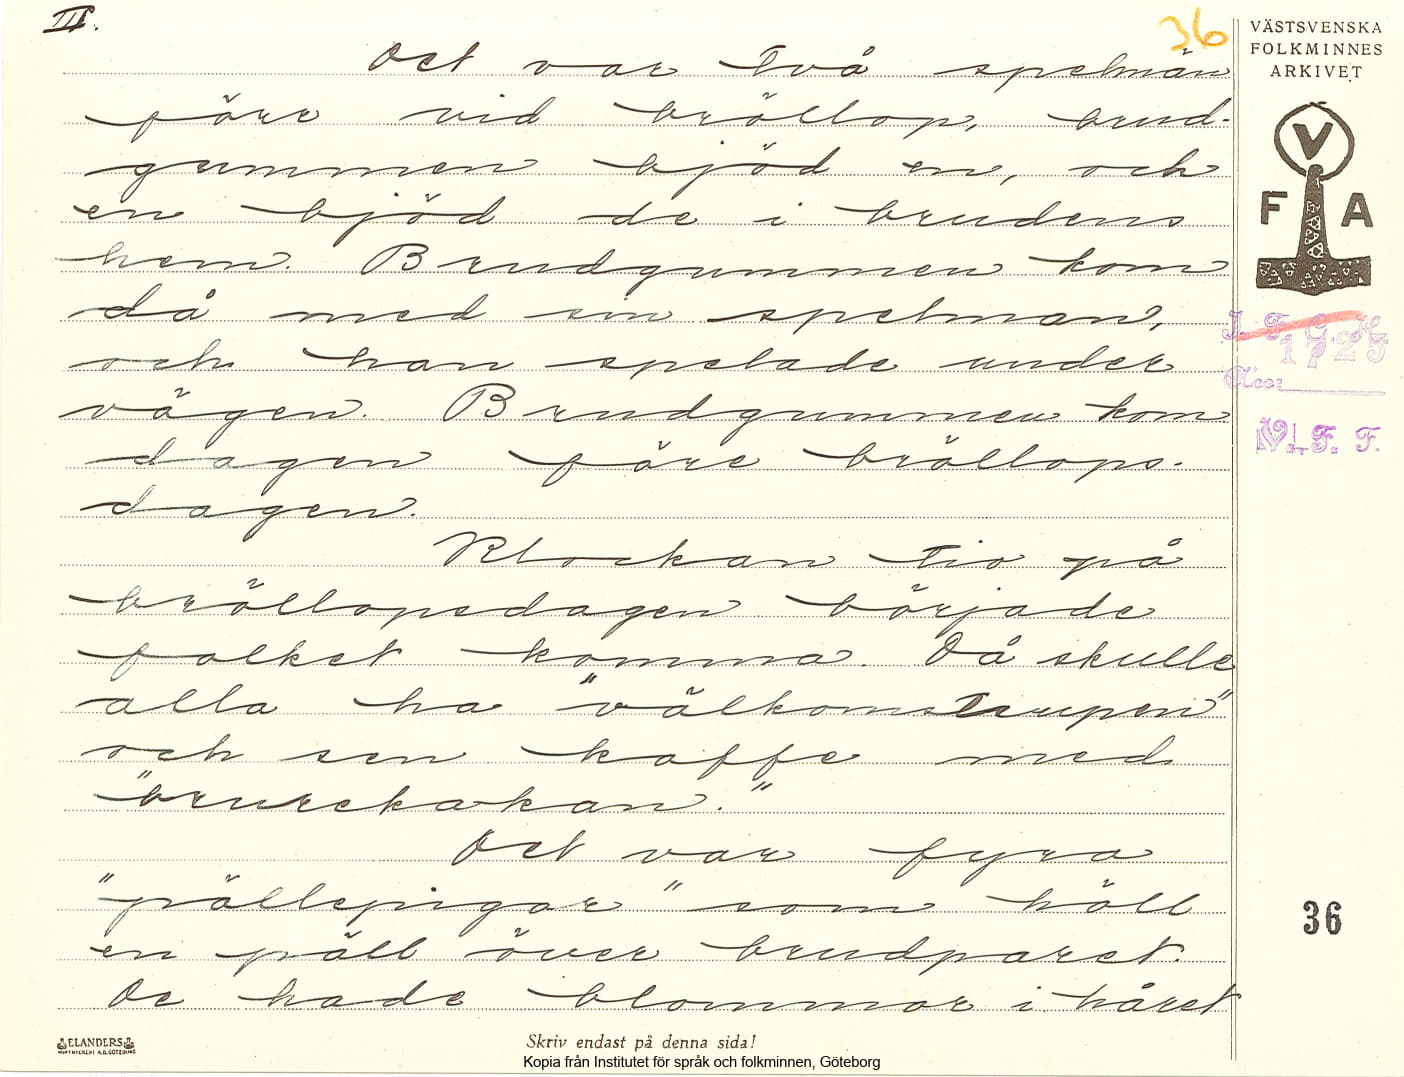 III.
36
VÄSTSVENSKA
FOLKMINNES
ARKIVET
V
F A
Det var två spelmän
före vid bröllop, brud-
gummen bjöd en, och
en bjöd de i brudens
hem. Brudgummen kom
då med sin spelman,
och han spelade under
vägen. Brudgummen kom
dagen före bröllops-
dagen.
Klockan tio på
bröllopsdagen började
folket komma. Då skulle
alla ha "välkomstsupen"
och sen kaffe med
"brurekakan."
Det var fyra
"pällepigor" som höll
en päll över brudparet.
De hade blommor i håret
I. F. G. H.
1725
Acc:
V. F. F.
36
ELANDERS
Skriv endast på denna sida!
Kopia från Institutet för språk och folkminnen, Göteborg